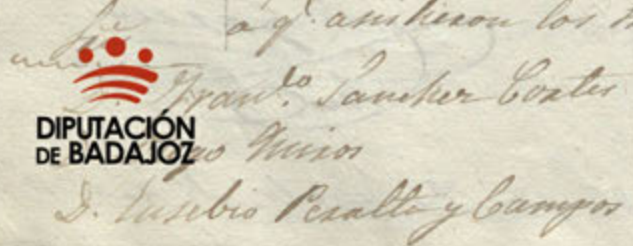 á q.ᵉ asistieron los
Fran.ᶜᵒ Sancher Cortes
DIPUTACIÓN
DE BADAJOZ
D. Eusebio Peralta y Campos